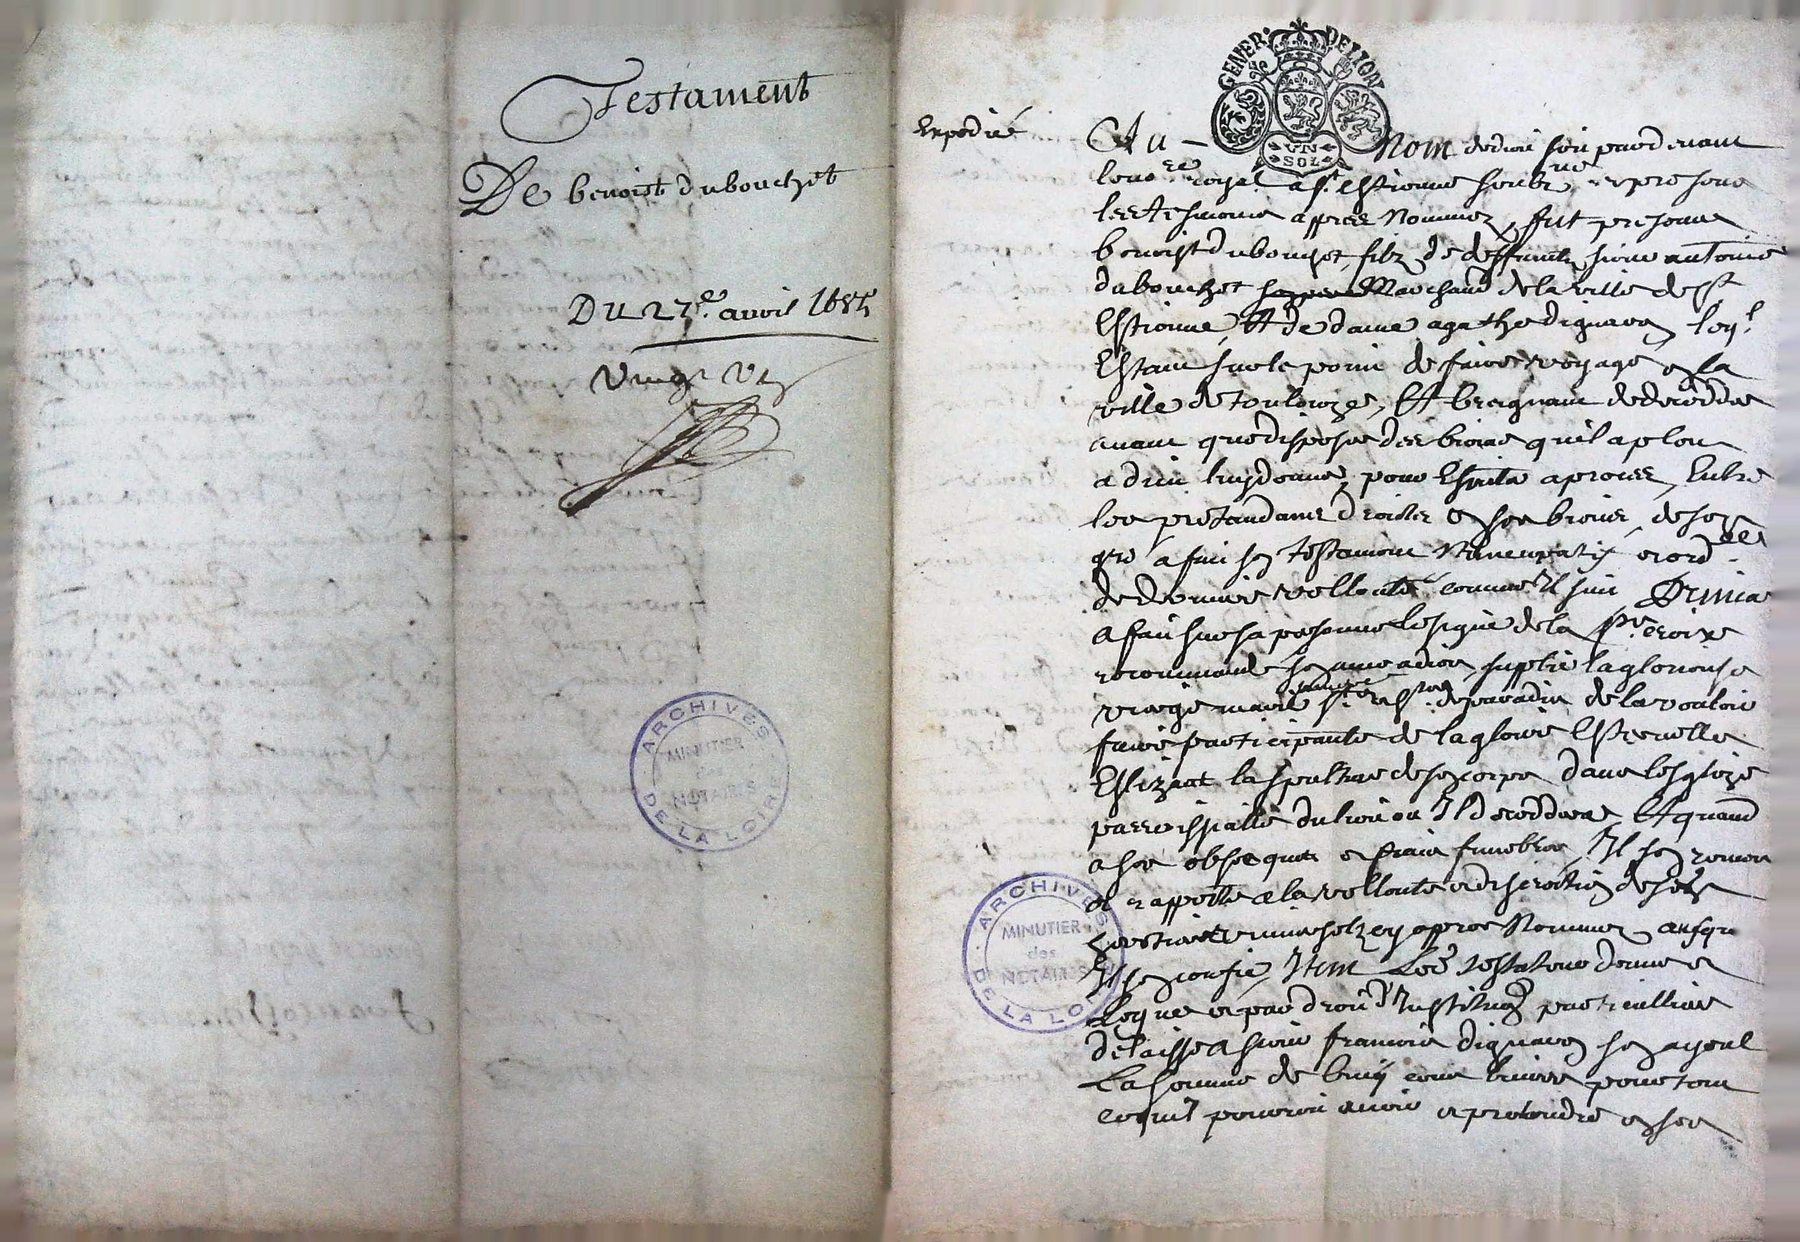 Testament
De benoist dubouchet
Du 27e. avril 1685
Vingt
ARCHIVES DE LA LOIRE
MINUTIER
des
NOTAIRES
GENER. DE LION
UN
SOL
Expedié
Au Nom de dieu soit par devant
le no.re royal a st estienne soubz.né et presens
les tesmoins appres Nommez, fut present
benoist dubouchet, filz de deffunt sieur anthoine
dubouchet Marchand de la ville de st
Estienne, Et de dame agathe dignaron, leql
Estant sur le point de faire voyage en la
ville de toulouze, Et craignant de decedder
avant que disposer des biens qu'il a pleu
a dieu luy donner, pour Esviter a proces, Entre
les pretendants droictz en ses biens, de son
gré a fait son testament Nuncupatif et ord.
de derniere vollonté comme Il suit Premier
a fait sur sa personne le signe de la ste. croix
recommandé son ame a dieu, supplié la glorieuse
vierge marie de paradis de la vouloir
faire participante de la gloire Esternelle
Eslizant la sepulture de son corps dans lesglize
parroissialle du lieu ou Il deceddera, Et quand
a ses obseques et frais funebres, Il s'en remet
et rapporte a la vollonté et discretion de son
heritiere universelle cy appres Nommez, auqu
Il se confie, Item Led testateur donne et
Legue et par droit d'Institution particulliere
delaisse a sieur francois dignaron son ayeul
La somme de huit cens livres pour tout
ce quil pourroit avoir et pretendre en ses
ARCHIVES DE LA LOIRE
MINUTIER
des
NOTAIRES